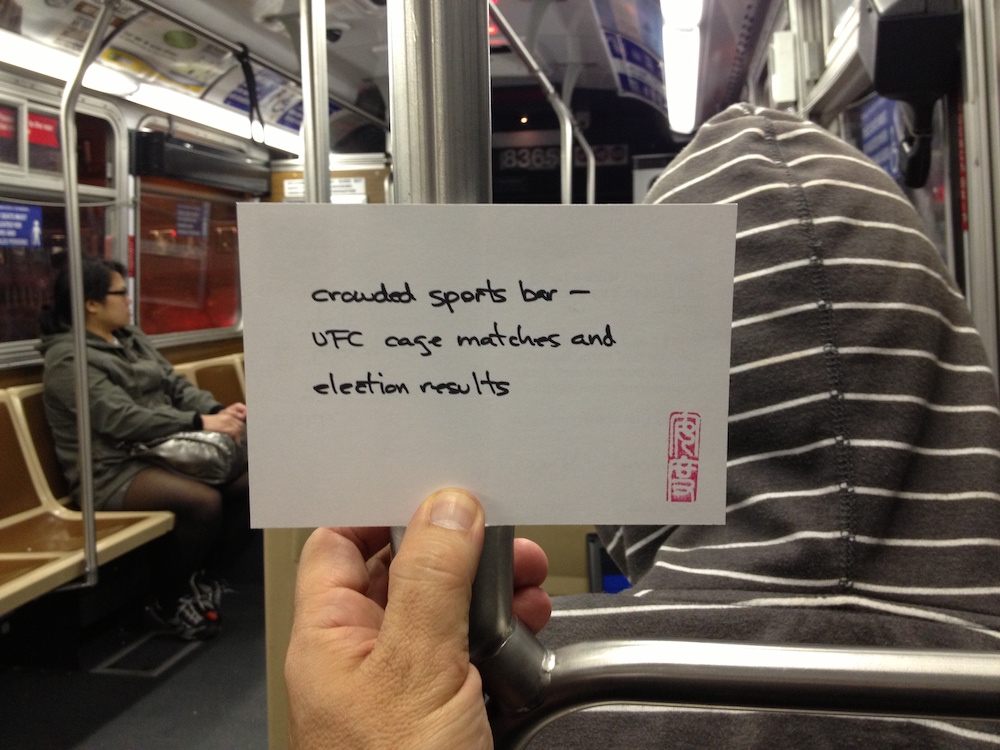 crowded sports bar –
UFC cage matches and
election results
8365